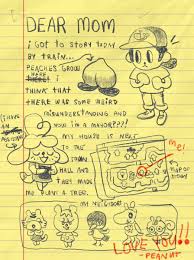 DEAR MOM
I GOT TO STORY TODAY
BY TRAIN...
PEACHES GROW
HERE!
I
THINK THAT
THERE WAS SOME WEIRD
MISUNDERSTANDING AND
NOW I'M A MAYOR????!
I HAVE
MY HOUSE IS NEXT
TO THE
TOWN
HALL AND
THEY MADE
ME PLANT A TREE.
ME!
MAP OF
TOWN!
MY NEIGHBORS
LOVE YOU!!
-PEANUT